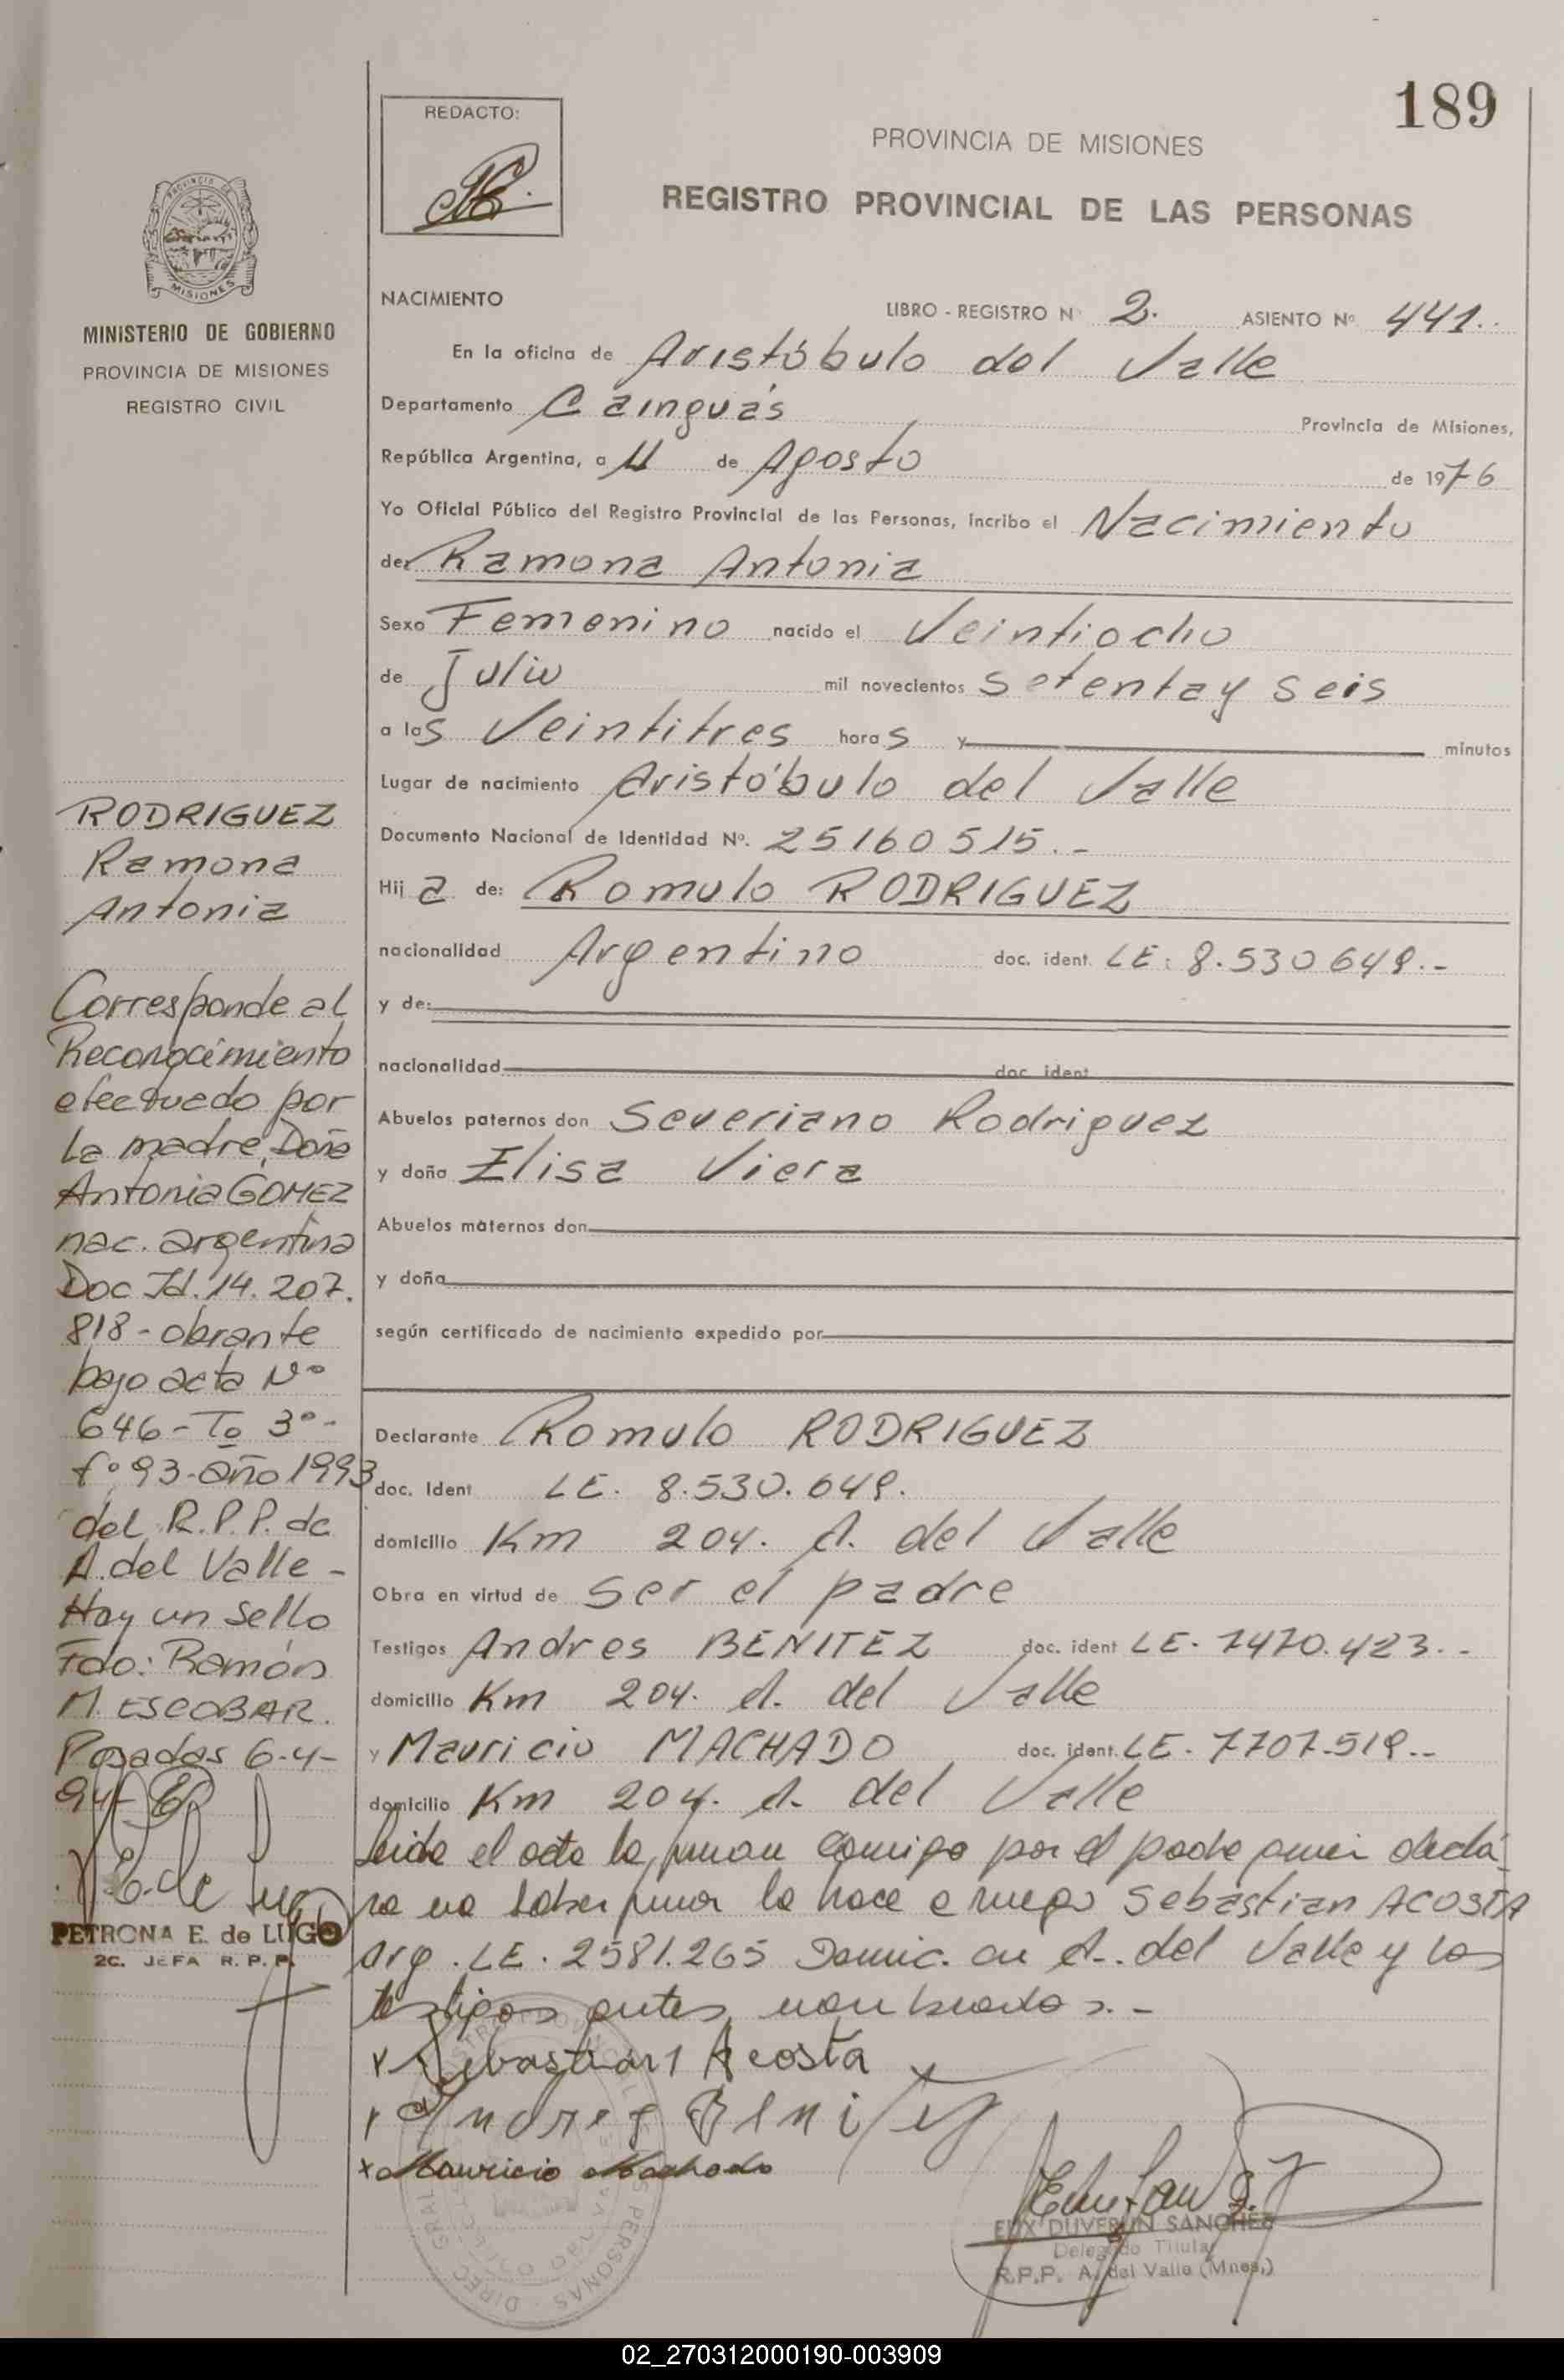 189
REDACTO:
PROVINCIA DE MISIONES
REGISTRO PROVINCIAL DE LAS PERSONAS
MISIONES
MINISTERIO DE GOBIERNO
PROVINCIA DE MISIONES
REGISTRO CIVIL
NACIMIENTO LIBRO - REGISTRO Nº 2. ASIENTO Nº 441.
En la oficina de Aristóbulo del Valle
Departamento Cainguás Provincia de Misiones,
República Argentina, a 11 de Agosto de 1976
Yo Oficial Público del Registro Provincial de las Personas, incribo el Nacimiento
de: Ramona Antonia
Sexo Femenino nacido el Veintiocho
de Julio mil novecientos setenta y seis
a las Veintitres horas y minutos
Lugar de nacimiento Aristóbulo del Valle
Documento Nacional de Identidad Nº. 25160515.-
Hija de: Romulo RODRIGUEZ
nacionalidad Argentino doc. ident. LE: 8.530.649.-
y de:
nacionalidad doc. ident.
Abuelos paternos don Severiano Rodriguez
y doña Elisa Viera
Abuelos maternos don
y doña
según certificado de nacimiento expedido por
Declarante Romulo RODRIGUEZ
doc. Ident LE. 8.530.649.
domicilio Km 204. A. del Valle
Obra en virtud de ser el padre
Testigos Andres BENITEZ doc. ident LE. 7470.423.-
domicilio Km 204. A. del Valle
y Mauricio MACHADO doc. ident. LE. 7707.519.-
domicilio Km 204. A. del Valle
Leida el acta la firman comigo por el padre quien decla
ra no saber firmar lo hace a ruego Sebastian ACOSTA
Arg. LE. 2581.265 Domic. en A. del Valle y los
testigos antes nombrados.-
x Sebastian Acosta
x Andres Benitez
x Mauricio Machado
ELIX DUVERLIN SANCHEZ
Delegado Titular
R.P.P. A. del Valle (Mnes.)
RODRIGUEZ
Ramona
Antonia
Corresponde al
Reconocimiento
efectuado por
la madre, Doña
Antonia GOMEZ
nac. argentina
Doc Id. 14.207.
818 - obrante
bajo acta Nº
646 - To 3º -
fº 93 - año 1993
del R.P.P. de
A. del Valle -
Hay un sello
Fdo: Ramón
M. ESCOBAR.
Posadas 6-4-
94-
PETRONA E. de LUGO
2C. JEFA R. P. P.
02_270312000190-003909